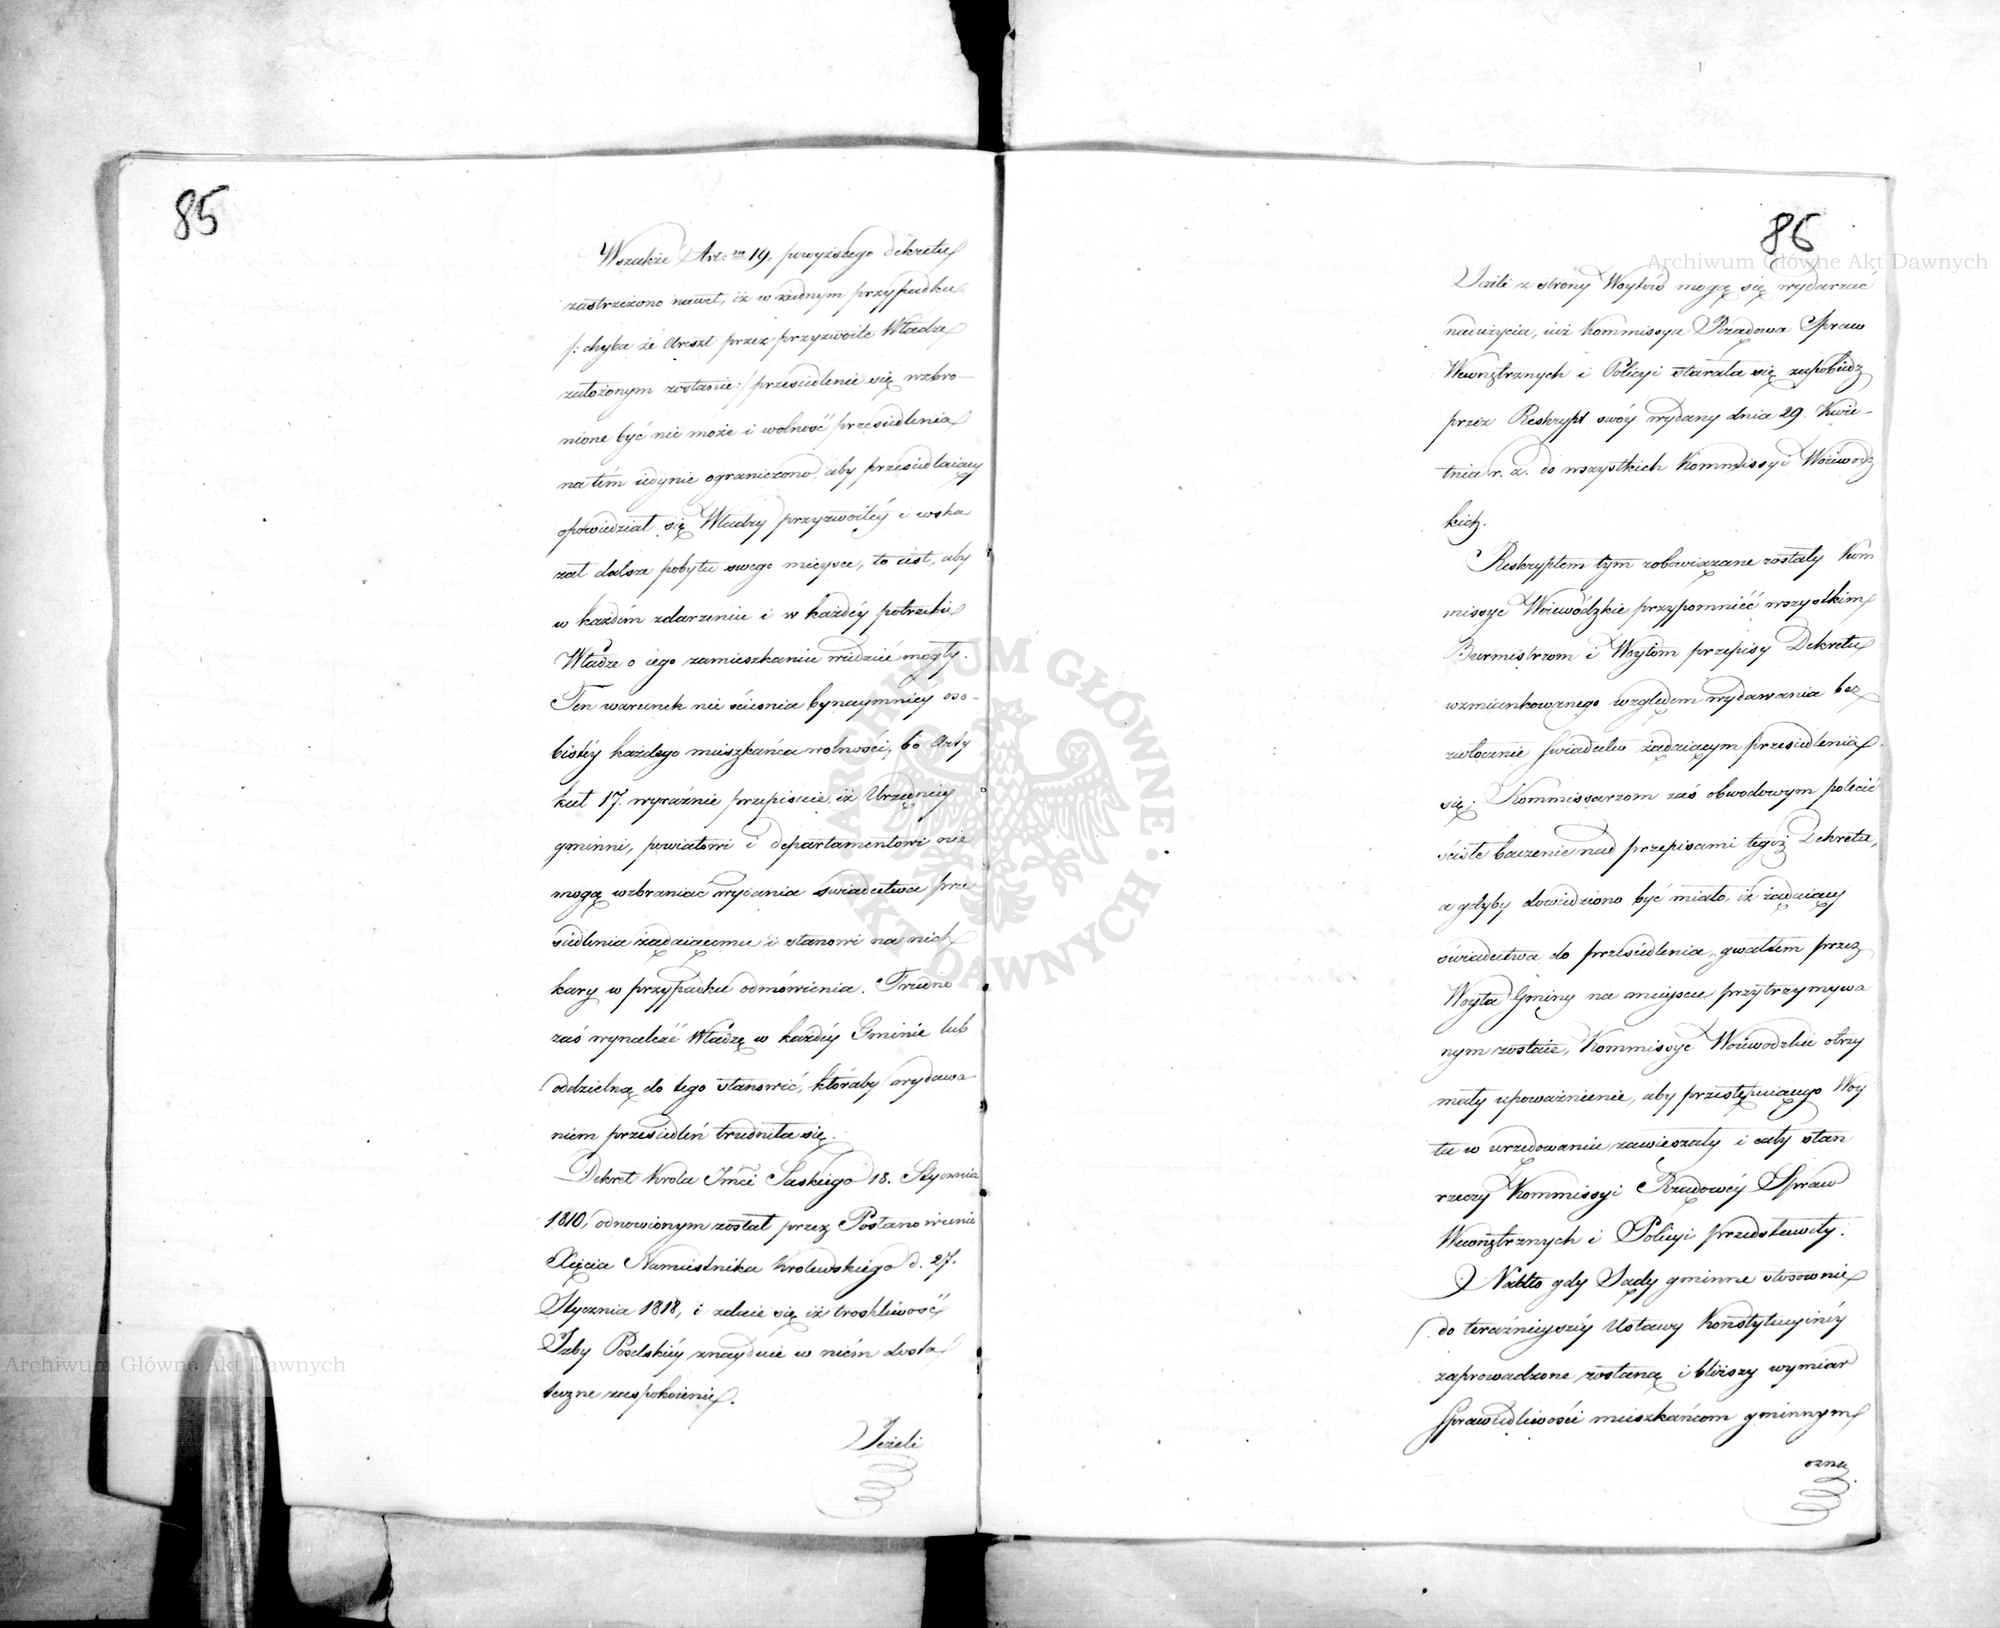 85
Wszakże Art: m 19. powyższego dekretu
zastrzeżono nawet, iż w żadnym przypadku
/: chyba że Areszt przez przyzwoite Władze
założonym zostanie :/ przesiedlenie się wzbro-
nione być nie może i wolność przesiedlenia
na tém iedynie ograniczono, aby przesiedlaiący
opowiedział się Władzy przyzwoitéy i wska
zał dalsze pobytu swego mieysce, to iest, aby
w każdém zdarzeniu i w każdéy potrzebie
Władze o iego zamieszkaniu wiedzieć mogły.
Ten warunek nie ścieśnia bynaymniéy oso-
bistéy każdego mieszkańca wolności, bo Arty
kuł 17. wyraźnie przepisuie, iż Urzędnicy
gminni, powiatowi i departamentowi nie
mogą wzbraniać wydania świadectwa prze
siedlenia żądaiącemu i stanowi na nich
kary w przypadku odmówienia. Trudno
zaś wynaleźć Władzę w każdéy Gminie lub
oddzielną do tego stanowić, któraby wydawa-
niem przesiedleń trudniła się.
Dekret Krola Jmći Saskiego 18. Stycznia
1810, odnowionym został przez Postanowienie
Xięcia Namiestnika Krolewskiego d. 27.
Stycznia 1818, i zdaie się iż troskliwość
Izby Poselskiéy znayduie w niém dosta
teczne zaspokoienie.
Jeżeli
86
Jeżeli z strony Woytów mogą się wydarzać
nadużycia, iuż Kommissya Rządowa Spraw
Wewnętrznych i Policyi starała się zapobiedz
przez Reskrypt swóy wydany dnia 29. Kwie-
tnia r. z. do wszystkich Kommissyi Woiewodz
kich.
Reskryptem tym zobowiązane zostały Kom
missye Woiewódzkie przypomnieć wszystkim
Burmistrzom i Woytom przepisy Dekretu
wzmiankowanego względem wydawania bez
zwłocznie świadectw żądaiącym przesiedlenia
się; Kommissarzom zaś obwodowym polecić
ścisłe baczenie nad przepisami tegoż Dekretu,
a gdyby dowiedziono być miało, iż żądaiący
świadectwa do przesiedlenia, gwałtem przez
Woyta Gminy na mieyscu przytrzymywa
nym zostaie, Kommissye Woiewodzkie otrzy
mały upoważnienie, aby przestępuiącego Woy
ta w urzędowaniu zawieszały i cały stan
rzeczy Kommissyi Rządowéy Spraw
Wewnętrznych i Policyi przedstawiły.
Nadto gdy Sądy gminne stosownie
do teraźnieyszéy Ustawy Konstytucyinéy
zaprowadzone zostaną i bliższy wymiar
sprawiedliwości mieszkańcom gminnym
ozna
Archiwum Główne Akt Dawnych
Archiwum Główne Akt Dawnych
ARCHIWUM GŁÓWNE AKT DAWNYCH